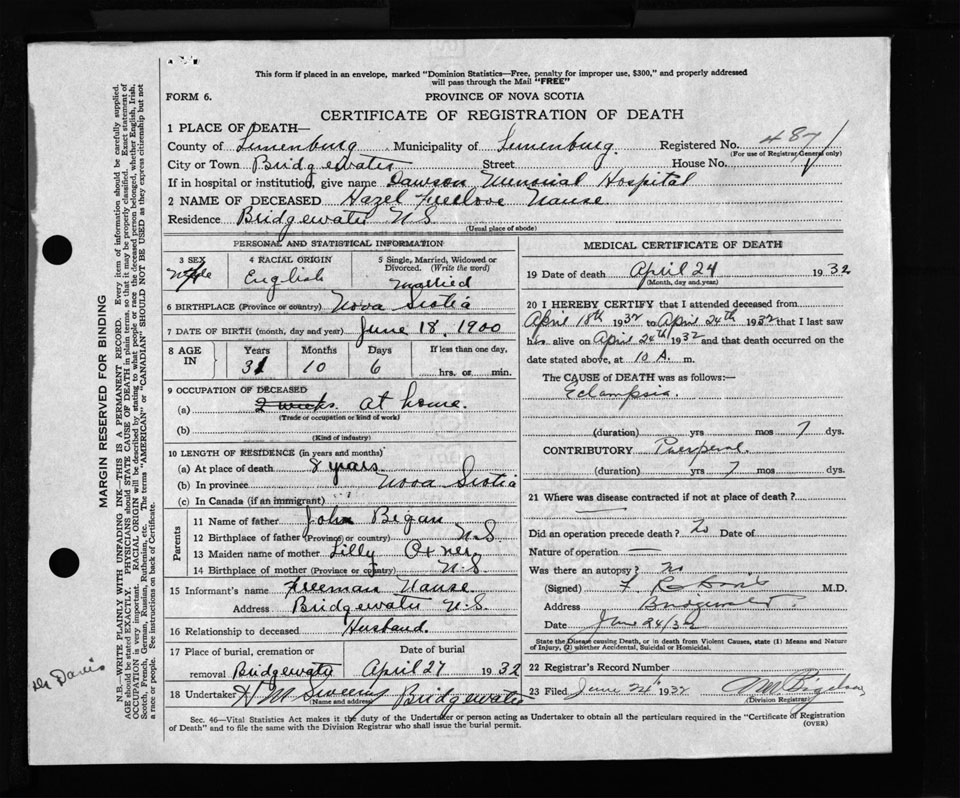 This form if placed in an envelope, marked "Dominion Statistics—Free, penalty for improper use, $300," and properly addressed
will pass through the Mail "FREE"
FORM 6. PROVINCE OF NOVA SCOTIA
CERTIFICATE OF REGISTRATION OF DEATH
1 PLACE OF DEATH—
County of Lunenburg Municipality of Lunenburg. Registered No. 487
(For use of Registrar General only)
City or Town Bridgewater Street House No.
If in hospital or institution, give name Dawson Memorial Hospital
2 NAME OF DECEASED Hazel Freelove Nause.
Residence Bridgewater N.S
(Usual place of abode)
PERSONAL AND STATISTICAL INFORMATION
3 SEX
4 RACIAL ORIGIN
English
5 Single, Married, Widowed or
Divorced. (Write the word)
Married
6 BIRTHPLACE (Province or country) Nova Scotia
7 DATE OF BIRTH (month, day and year) June 18, 1900
8 AGE IN Years Months Days If less than one day,
31 10 6 hrs. or min.
9 OCCUPATION OF DECEASED
(a) 2 weeks. At home.
(Trade or occupation or kind of work)
(b)
(Kind of industry)
10 LENGTH OF RESIDENCE (in years and months)
(a) At place of death 8 years.
(b) In province Nova Scotia
(c) In Canada (if an immigrant)
Parents
11 Name of father John Began
12 Birthplace of father (Province or country) N.S
13 Maiden name of mother Lilly Oxner
14 Birthplace of mother (Province or country) N.S
15 Informant's name Freeman Nause.
Address Bridgewater N.S.
16 Relationship to deceased Husband.
17 Place of burial, cremation or Date of burial
removal Bridgewater April 27 1932
18 Undertaker H M Sweeny Bridgewater
(Name and address)
MEDICAL CERTIFICATE OF DEATH
19 Date of death April 24 1932
(Month, day and year)
20 I HEREBY CERTIFY that I attended deceased from
April 18th 1932 to April 24th 1932 that I last saw
h alive on April 24th 1932 and that death occurred on the
date stated above, at 10 A. m.
The CAUSE of DEATH was as follows:—
Eclampsia.
(duration) yrs mos 7 dys.
CONTRIBUTORY Puerperal
(duration) yrs 7 mos dys.
21 Where was disease contracted if not at place of death?
Did an operation precede death? No Date of
Nature of operation —
Was there an autopsy? No
(Signed) M.D.
Address Bridgewater.
Date June 24/32
State the Disease causing Death, or in death from Violent Causes, state (1) Means and Nature
of Injury, (2) whether Accidental, Suicidal or Homicidal.
22 Registrar's Record Number
23 Filed June 24 1932
(Division Registrar)
Sec. 46—Vital Statistics Act makes it the duty of the Undertaker or person acting as Undertaker to obtain all the particulars required in the "Certificate of Registration
of Death" and to file the same with the Division Registrar who shall issue the burial permit. (OVER)
MARGIN RESERVED FOR BINDING
N.B.—WRITE PLAINLY WITH UNFADING INK—THIS IS A PERMANENT RECORD. Every item of information should be carefully supplied.
AGE should be stated EXACTLY. PHYSICIANS should STATE CAUSE OF DEATH in plain terms, so that it may be properly classified. Exact statement of
OCCUPATION is very important. RACIAL ORIGIN will be described by stating to what people or race the deceased person belonged, whether English, Irish,
Scotch, French, German, Russian, Ruthenian, etc. The terms "AMERICAN" or "CANADIAN" SHOULD NOT BE USED as they express citizenship but not
a race or people. See instructions on back of Certificate.
Dr Davis